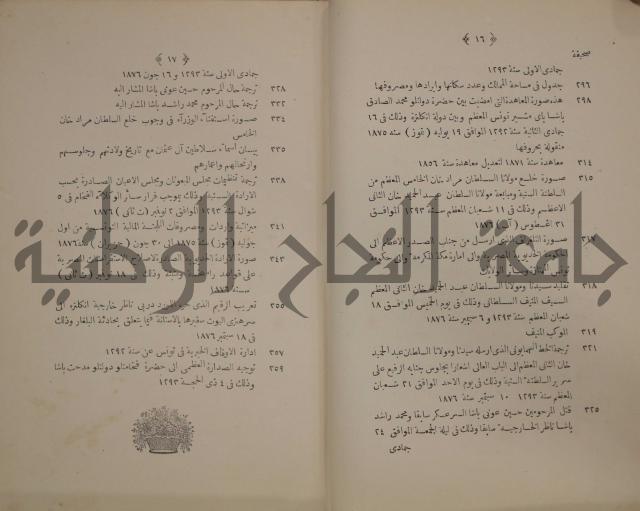 ﴿ ١٦ ﴾
صحيفة
جمادى الاولى سنة ١٢٩٣
٢٩٦ جدول فى مساحة الممالك وعدد سكانها وايرادها ومصروفها
٢٩٨ هذه صورة المعاهدة التى امضيت بين حضرة دولتلو محمد الصادق
پاشا باى مشير تونس المعظم وبين دولة انكلترة وذلك فى ١٦
جمادى الثانية سنة ١٢٩٢ الموافق ١٩ يوليه ( تموز ) سنه ١٨٧٥
منقولة بحروفها
٣١٤ معاهدة سنة ١٨٧١ لتعديل معاهدة سنة ١٨٥٦
٣١٥ صورة خلع مولانا السلطان مراد خان الخامس المعظم من
السلطنة السنية ومبايعة مولانا السلطان عبد الحميد خان الثانى
الاعظم وذلك فى ١١ شعبان المعظم سنة ١٢٩٣ الموافق
٣١ اغسطوس ( آب ) ١٨٧٦
٣١٧ صورة التلغراف الذى ارسل من جناب الصدر الاعظم الى
الحكومة الخديوية المصرية والى امارة مكة المكرمة والى حكومة
تونس
٣١٨ تقليد سيدنا ومولانا السلطان عبد الحميد خان الثانى المعظم
السيف المنيف السلطانى وذلك فى يوم الخميس الموافق ١٨
شعبان المعظم سنة ١٢٩٣ و ٦ سبتمبر سنة ١٨٧٦
٣١٩ الموكب المنيف
٣٢١ ترجمة الخط الهمايونى الذى ارسله سيدنا ومولانا السلطان عبد الحميد
خان الثانى المعظم الى الباب العالى اشعارا بجلوس جنابه الرفيع على
سرير السلطنة السنية وذلك فى يوم الاحد الموافق ٢١ شعبان
المعظم سنة ١٢٩٣ ١٠ سبتمبر سنة ١٨٧٦
٣٢٥ قتل المرحومين حسين عونى پاشا السر عسكر سابقا ومحمد راشد
پاشا ناظر الخارجية سابقا وذلك فى ليلة الجمعة الموافق ٢٤
جمادى
﴿ ١٧ ﴾
جمادى الاولى سنة ١٢٩٣ و ١٦ جون ١٨٧٦
٣٢٨ ترجمة حال المرحوم حسين عونى پاشا المشار اليه
٣٣٢ ترجمة حال المرحوم محمد راشد پاشا المشار اليه
٣٣٤ صورة استفتاء الوزراء فى وجوب خلع السلطان مراد خان
الخامس
٣٣٥ بيان اسماء سلاطين آل عثمان مع تاريخ ولادتهم وجلوسهم
وارتحالهم واعمارهم
٣٣٨ ترجمة تنظيمات مجلس المبعوثان ومجلس الاعيان الصادرة بحسب
الارادة السنية وذلك بموجب قرار سائر الوكلاء الفخام فى ٥
شوال سنة ١٢٩٣ الموافق ٢ نوفمبر ( ت ثانى ) ١٨٧٦
٣٤١ ميزانية واردات ومصروفات اللجنة المالية التونسية من اول
جوليه ( تموز ) سنة ١٨٧٥ الى ٣٠ جون ( حزيران ) سنة ١٨٧٦
٣٤٣ صورة الارادة الخديوية الصادرة لاصلاح الاستقراضات المصرية
على قواعد وذلك فى ١٨ نوفمبر ( ت ثانى )
سنة ١٨٧٦
٣٥٥ تعريب الرقيم الذى حرره اللورد دربى ناظر خارجية انكلترة الى
سر هنرى اليوت سفيرها بالاستانة فيما يتعلق بحادثة البلغار وذلك
فى ١٨ سبتمبر ١٨٧٦
٣٥٧ ادارة الاوقاف الخيرية فى تونس عن سنة ١٢٩٢
٣٥٩ توجيه الصدارة العظمى الى حضرة فخامتلو دولتلو مدحت پاشا
وذلك فى ٤ ذى الحجة ١٢٩٣
جامعة النجاح الوطنية